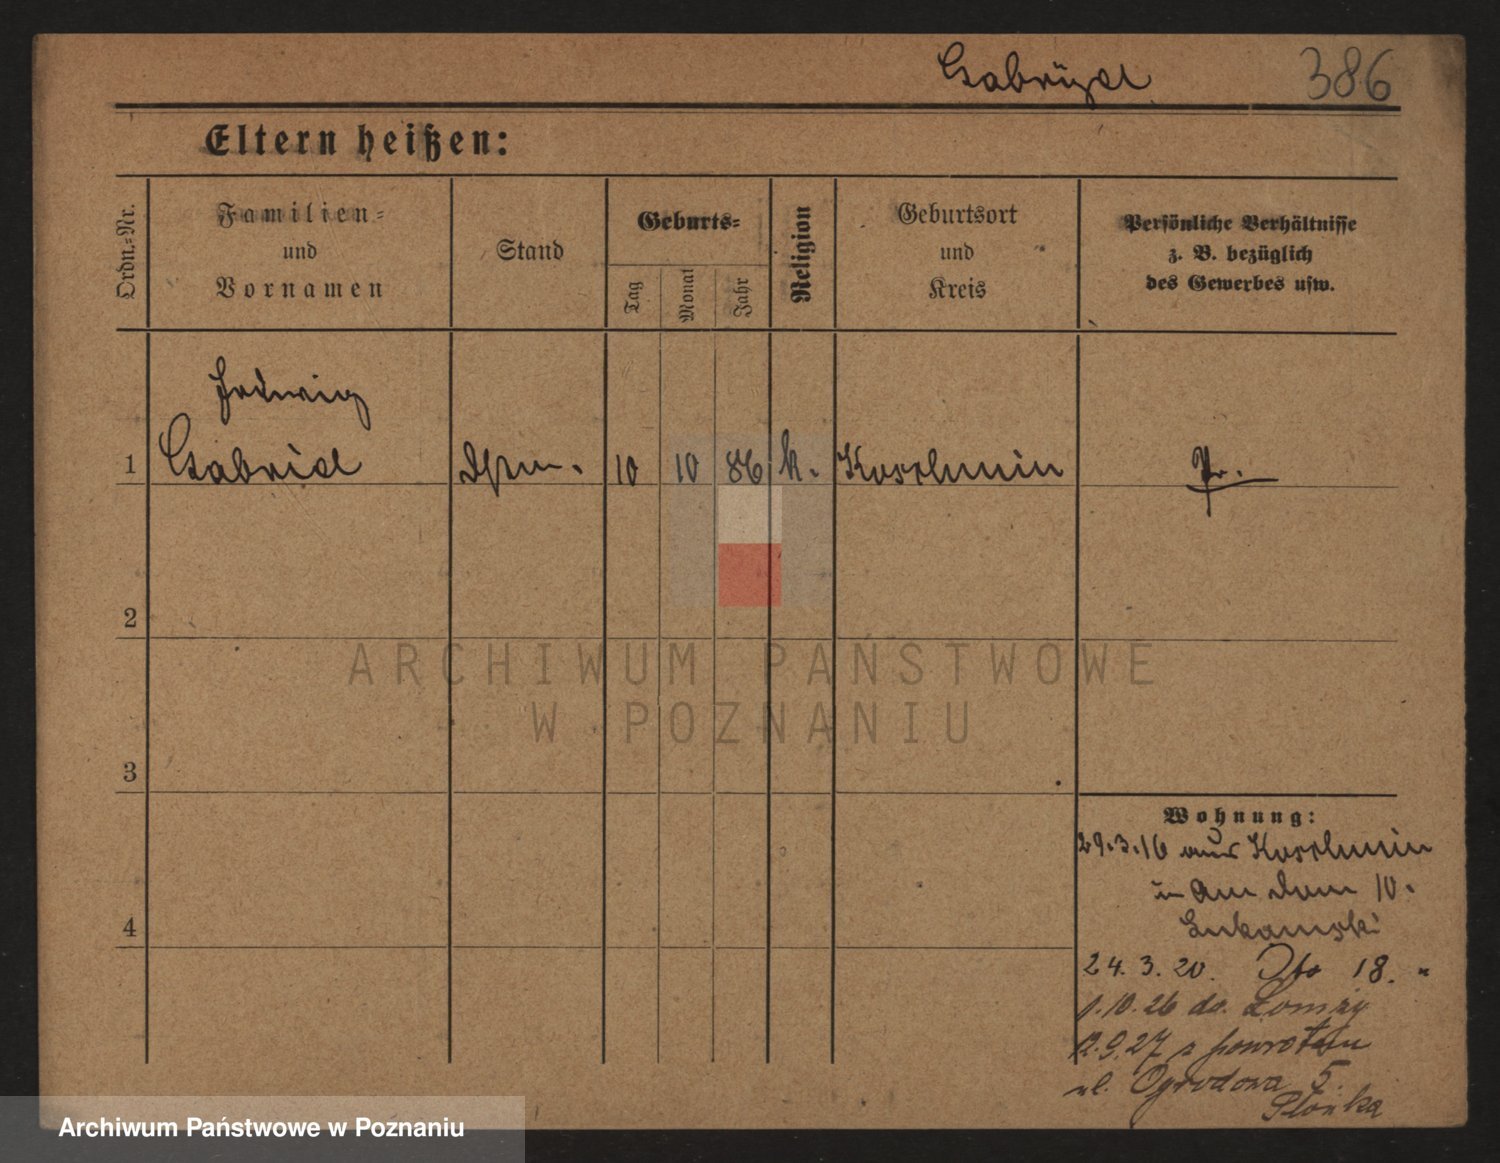 Gabryel 386
Eltern heißen:
Ordn.=Nr.
Familien=
und
Vornamen
Stand
Geburts=
Tag
Monat
Jahr
Religion
Geburtsort
und
Kreis
Persönliche Verhältnisse
z. B. bezüglich
des Gewerbes usw.
Hedwig
1 Gabriel 10 10 86 k. Koschmin Pr.
2
3
4
Wohnung:
29.3.16 aus Koschmin
Am Dom 10.
Lukamski
24.3.20. Dto 18. "
1.10.26 do Łomży
12.9.27 z powrotem
ul. Ogrodowa 5.
Płonka
ARCHIWUM PAŃSTWOWE
W POZNANIU
Archiwum Państwowe w Poznaniu